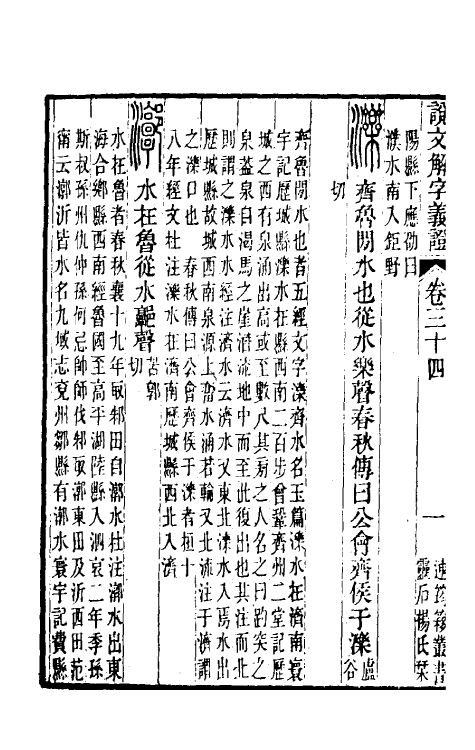 說文解字義證 卷三十四 一 連筠簃叢書
靈石楊氏栞
陽縣下應劭曰
濮水南入鉅野
濼 齊魯閒水也從水樂聲春秋傳曰公會齊侯于濼盧谷
切
齊魯閒水也者五經文字濼齊水名玉篇濼水在濟南寰
宇記歷城縣濼水在縣西南二百步會鞏齊州二堂記歷
城之西有泉涌出高或至數尺其旁之人名之曰趵突之
泉葢泉自渴馬之崖潛流地中而至此復出也其注而北
則謂之濼水水經注濟水云濟水又東北濼水入焉水出
歷城縣故城西南泉源上奮水涌若輪又北流注于濟謂
之濼口也 春秋傳曰公會齊侯于濼者桓十
八年經文杜注濼水在濟南歷城縣西北入濟
漷 水在魯從水郭聲苦郭切
水在魯者春秋襄十九年取邾田自漷水杜注漷水出東
海合鄉縣西南經魯國至高平湖陸縣入泗哀二年季孫
斯叔孫州仇仲孫何忌帥師伐邾取漷東田及沂西田范
甯云漷沂皆水名九域志兗州鄒縣有漷水寰宇記費縣